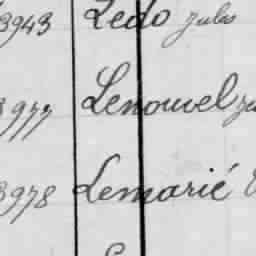 3943 Ledo Jules
3977 Lenouvel
3978 Lemarié